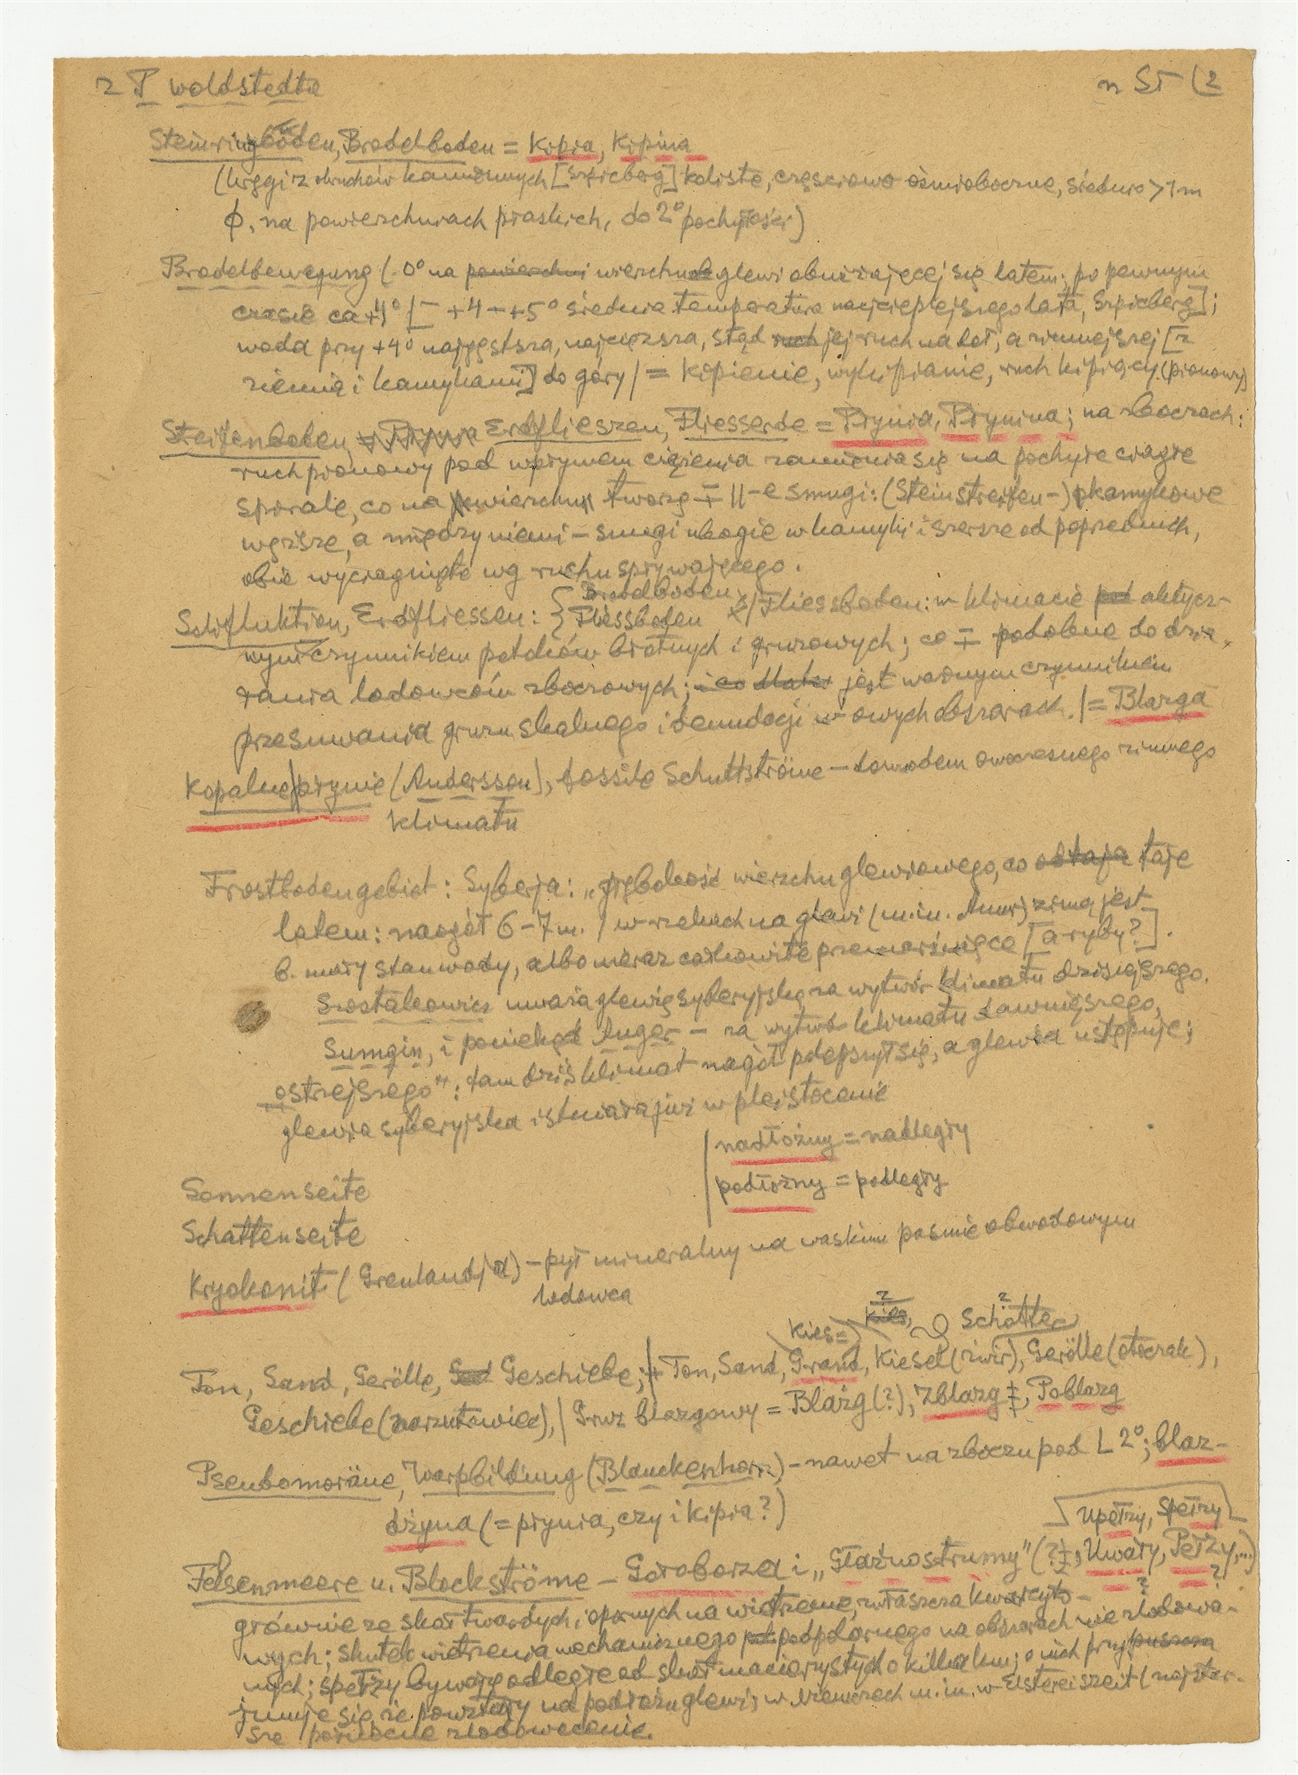 z P Woldstedta
n ST (2
Steinringböden, Brodelboden = Kipia, Kipina
(kręgi z okruchów kamiennych [Szpicberg] koliste, częściowo ośmioboczne, średnio >1m
ϕ, na powierzchniach płaskich, do 2° pochyłości)
Brodelbewegung (0° na powierzchni wierzchu glewi obniżającej się latem; po pewnym
czasie ca +4° [– +4 – +5° średnia temperatura najcieplejszego lata, Szpicberg];
woda przy +4° najgęstsza, najcięższa, stąd ruch jej ruch na dół, a zimniejszej [z
ziemią i kamykami] do góry/ = kipienie, wykipianie, ruch kipiący (pionowy)
Streifenboden, Erdfliessen, Fliesserde = Płynia, Płynina; na zboczach:
ruch pionowy pod wpływem ciążenia zamienia się na pochyłe ciągłe
spirale, co na powierzchni tworzą ∓ ||-e smugi: (Steinstreifen-) kamykowe
węższe, a między niemi – smugi ubogie w kamyki i szersze od poprzednich,
obie wyciągnięte wg ruchu spływającego.
Solifluktion, Erdfliessen: { Brodelboden
Fliessboden /Fliessboden: w klimacie pod arktycz-
nym czynnikiem potoków błotnych i gruzowych; co ∓ podobne do dzia-
łania lodowców zboczowych; i co jest ważnym czynnikiem
przesuwania gruzu skalnego i denudacji w owych obszarach. /= Błazga
Kopalne płynie (Andersson), fossile Schuttströme – dowodem owoczesnego zimnego
klimatu
Frostbodengebiet: Syberja: „głębokość wierzchu glewiowego, co odtaja taje
latem: naogół 6–7m. / w rzekach na glewi (m.in. Amur) zimą jest
b. mały stan wody, albo nieraz całkowite przemarznięcie [a ryby?].
Szostakowicz uważa glewię syberyjską za wytwór klimatu dzisiejszego.
Sumgin, i poniekąd Unger – za wytwór klimatu dawniejszego,
ostrzejszego“: tam dziś klimat nagół polepszył się, a glewia ustępuje;
glewia syberyjska istniała już w plejstocenie
nadłożny = nadległy
podłożny = podległy
Sonnenseite
Schattenseite
Kryokonit (Grenlandja) – pył mineralny na wąskim paśmie obwodowym
lodowca
Kies=) ? Kies, ? Schotter
Ton, Sand, Gerölle, Geschiebe; Ton, Sand, Grand, Kiesel (żwir), Gerölle (otoczak),
Geschiebe (narzutowiec), / Gruz błazgowy = Błaźg (?), Zbłazg ‡, Pobłazg
Pseudomoräne, Warpbildung (Blanckenhorn) – nawet na zboczu pod L 2°; błaz-
dżyna (= płynia, czy i kipia?)
Upełzy, Spełzy
Felsenmeere u. Blockströme – Gołoborza i „Głaźnostrumy“ (?‡; Uwały, Pełzy,...)
? ?
głównie ze skał twardych i opornych na wietrzenie, zwłaszcza kwarcyto-
wych; skutek wietrzenia mechanicznego podpolarnego na obszarach nie zlodowa-
nych; spełzy bywają odległe od skał macierzystych o kilka km; o nich przypuszcza
jmuje się że powstały na podłożu glewi; w Niemczech m.in. w Elstereiszeit (najstar-
sze północne zlodowacenie.